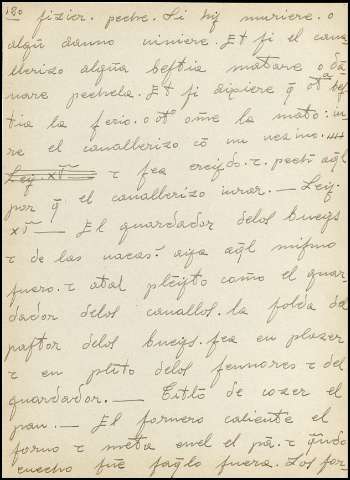 180 fizier. peche. Si hy muriere. o
algũ danno viniere. Et si el caua
llerizo algũa bestia matare o dã
nare pechela. Et si dixiere q̃ ot̃ᵃ bes
tia la ferio. o ot̃ omẽ la mato: iu
re el cauallerizo cõ un uezino.
Ley. xṽ τ sea creydo. τ. peche aq̃l
por q̃ el cauallerizo iurar. — Ley.
xṽ — El guardador delos bueys
τ de las uacas. aya aq̃l mismo
fuero. τ atal pleỹto como el guar
dador delos cauallos. la solda del
pastor delos bueys. sea en plazer
τ en pleito delos sennores τ del
guardador. — Titlõ de cozer el
pan. — El fornero caliente el
forno τ meta enel el pã. τ q̃ndo
cuecho fue saq̃lo fuera. Los for-